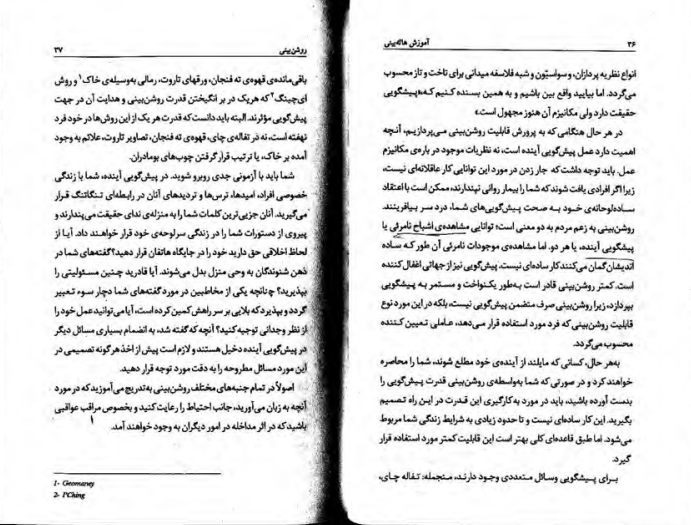 ۳۶
آموزش هاله‌بینی
انواع نظریه پردازان، و سواسیّون و شبه فلاسفه میدانی برای تاخت و تاز محسوب
می‌گردد. اما بیایید واقع بین باشیم و به همین بسنده کنیم که «پیشگویی
حقیقت دارد ولی مکانیزم آن هنوز مجهول است.»
در هر حال هنگامی که به پرورش قابلیت روشن‌بینی می‌پردازیم، آنچه
اهمیت دارد عمل پیش‌گویی آینده است، نه نظریات موجود در باره‌ی مکانیزم
عمل. باید توجه داشت که جار زدن در مورد این توانایی کار عاقلانه‌ای نیست،
زیرا اگر افرادی یافت شوند که شما را بیمار روانی نپندارند، ممکن است با اعتقاد
ساده‌لوحانه‌ی خود به صحت پیش‌گویی‌های شما، درد سر بیافرینند.
روشن‌بینی به زعم مردم به دو معنی است؛ توانایی مشاهده‌ی اشباح نامرئی یا
پیشگویی آینده، یا هر دو. اما مشاهده‌ی موجودات نامرئی آن طور که ساده
اندیشان گمان می‌کنند کار ساده‌ای نیست. پیش‌گویی نیز از جهاتی اغفال کننده
است. کمتر روشن‌بینی قادر است به‌طور یکنواخت و مستمر به پیشگویی
بپردازد، زیرا روشن‌بینی صرف متضمن پیش‌گویی نیست، بلکه در این مورد نوع
قابلیت روشن‌بینی که فرد مورد استفاده قرار می‌دهد، عاملی تعیین کننده
محسوب می‌گردد.
به‌هر حال، کسانی که مایلند از آینده‌ی خود مطلع شوند، شما را محاصره
خواهند کرد و در صورتی که شما به‌واسطه‌ی روشن‌بینی قدرت پیش‌گویی را
بدست آورده باشید، باید در مورد به‌کارگیری این قدرت در این راه تصمیم
بگیرید. این کار ساده‌ای نیست و تا حدود زیادی به شرایط زندگی شما مربوط
می‌شود. اما طبق قاعده‌ای کلی بهتر است این قابلیت کمتر مورد استفاده قرار
گیرد.
برای پیشگویی وسائل متعددی وجود دارند، منجمله: تفاله چای،
روشن‌بینی
۳۷
باقی‌مانده‌ی قهوه‌ی ته فنجان، ورقهای تاروت، رمالی به‌وسیله‌ی خاک۱ و روش
ای‌چینگ۲ که هر یک در بر انگیختن قدرت روشن‌بینی و هدایت آن در جهت
پیش‌گویی مؤثرند. البته باید دانست که قدرت هر یک از این روش‌ها در خود فرد
نهفته است، نه در تفاله‌ی چای، قهوه‌ی ته فنجان، تصاویر تاروت، علائم به وجود
آمده بر خاک، یا ترتیب قرار گرفتن چوب‌های بومادران.
شما باید با آزمونی جدی روبرو شوید. در پیش‌گویی آینده، شما با زندگی
خصوصی افراد، امیدها، ترس‌ها و تردیدهای آنان در رابطه‌ای تنگاتنگ قرار
می‌گیرید. آنان جزیی‌ترین کلمات شما را به منزله‌ی ندای حقیقت می‌پندارند و
پیروی از دستورات شما را در زندگی سرلوحه‌ی خود قرار خواهند داد. آیا از
لحاظ اخلاقی حق دارید خود را در جایگاه هاتفان قرار دهید؟ گفته‌های شما در
ذهن شنوندگان به وحی منزل بدل می‌شوند. آیا قادرید چنین مسئولیتی را
بپذیرید؟ چنانچه یکی از مخاطبین در مورد گفته‌های شما دچار سوء تعبیر
گردد و بپذیرد که بلایی بر سر راهش کمین کرده است، آیا می‌توانید عمل خود را
از نظر وجدانی توجیه کنید؟ آنچه که گفته شد، به انضمام بسیاری مسائل دیگر
در پیش‌گویی آینده دخیل هستند و لازم است پیش از اخذ هر گونه تصمیمی در
این مورد مسائل مطروحه را به دقت مورد توجه قرار دهید.
اصولاً در تمام جنبه‌های مختلف روشن‌بینی به‌تدریج می‌آموزید که در مورد
آنچه به زبان می‌آورید، جانب احتیاط را رعایت کنید و بخصوص مراقب عواقبی
باشید که در اثر مداخله در امور دیگران به وجود خواهند آمد.
1- Geomancy
2- I'Ching